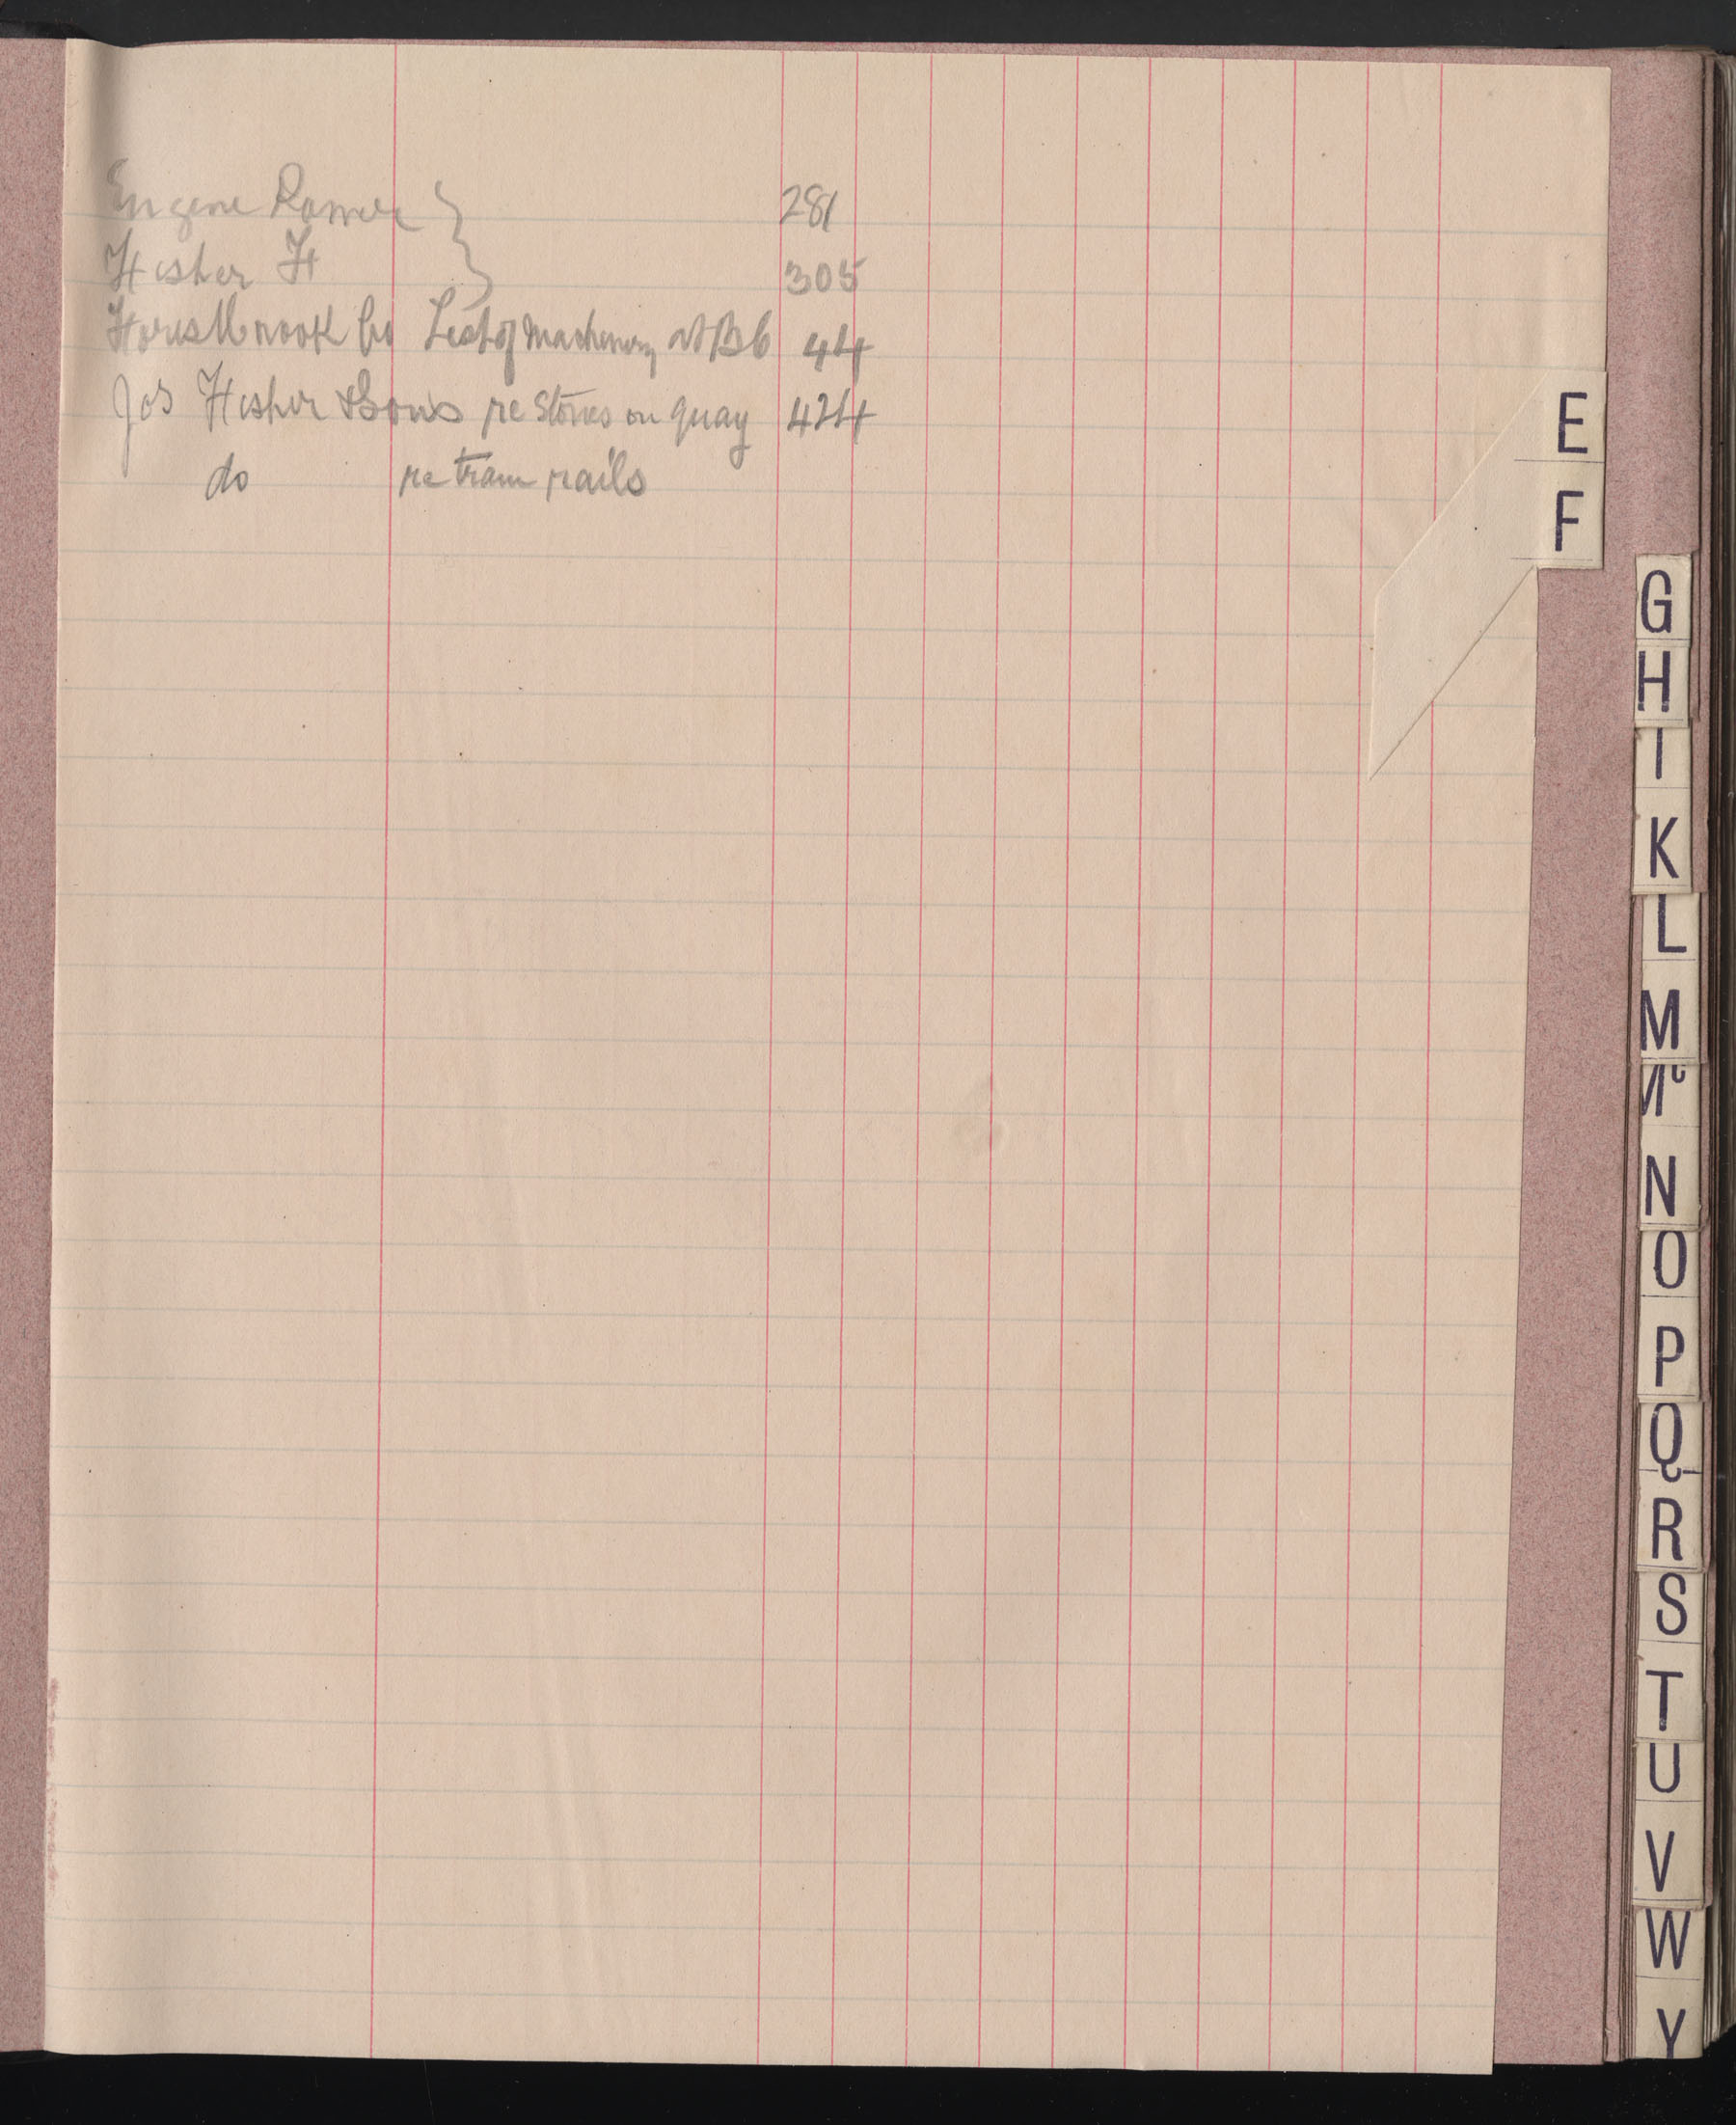 Eugene Romer 281
Fisher F 305
Co List of Machinery at B6 44
Jos Fisher & Sons re Stones on quay 424
do re tram rails
E
F
G
H
I
K
L
M
Mc
N
O
P
Q
R
S
T
U
V
W
Y